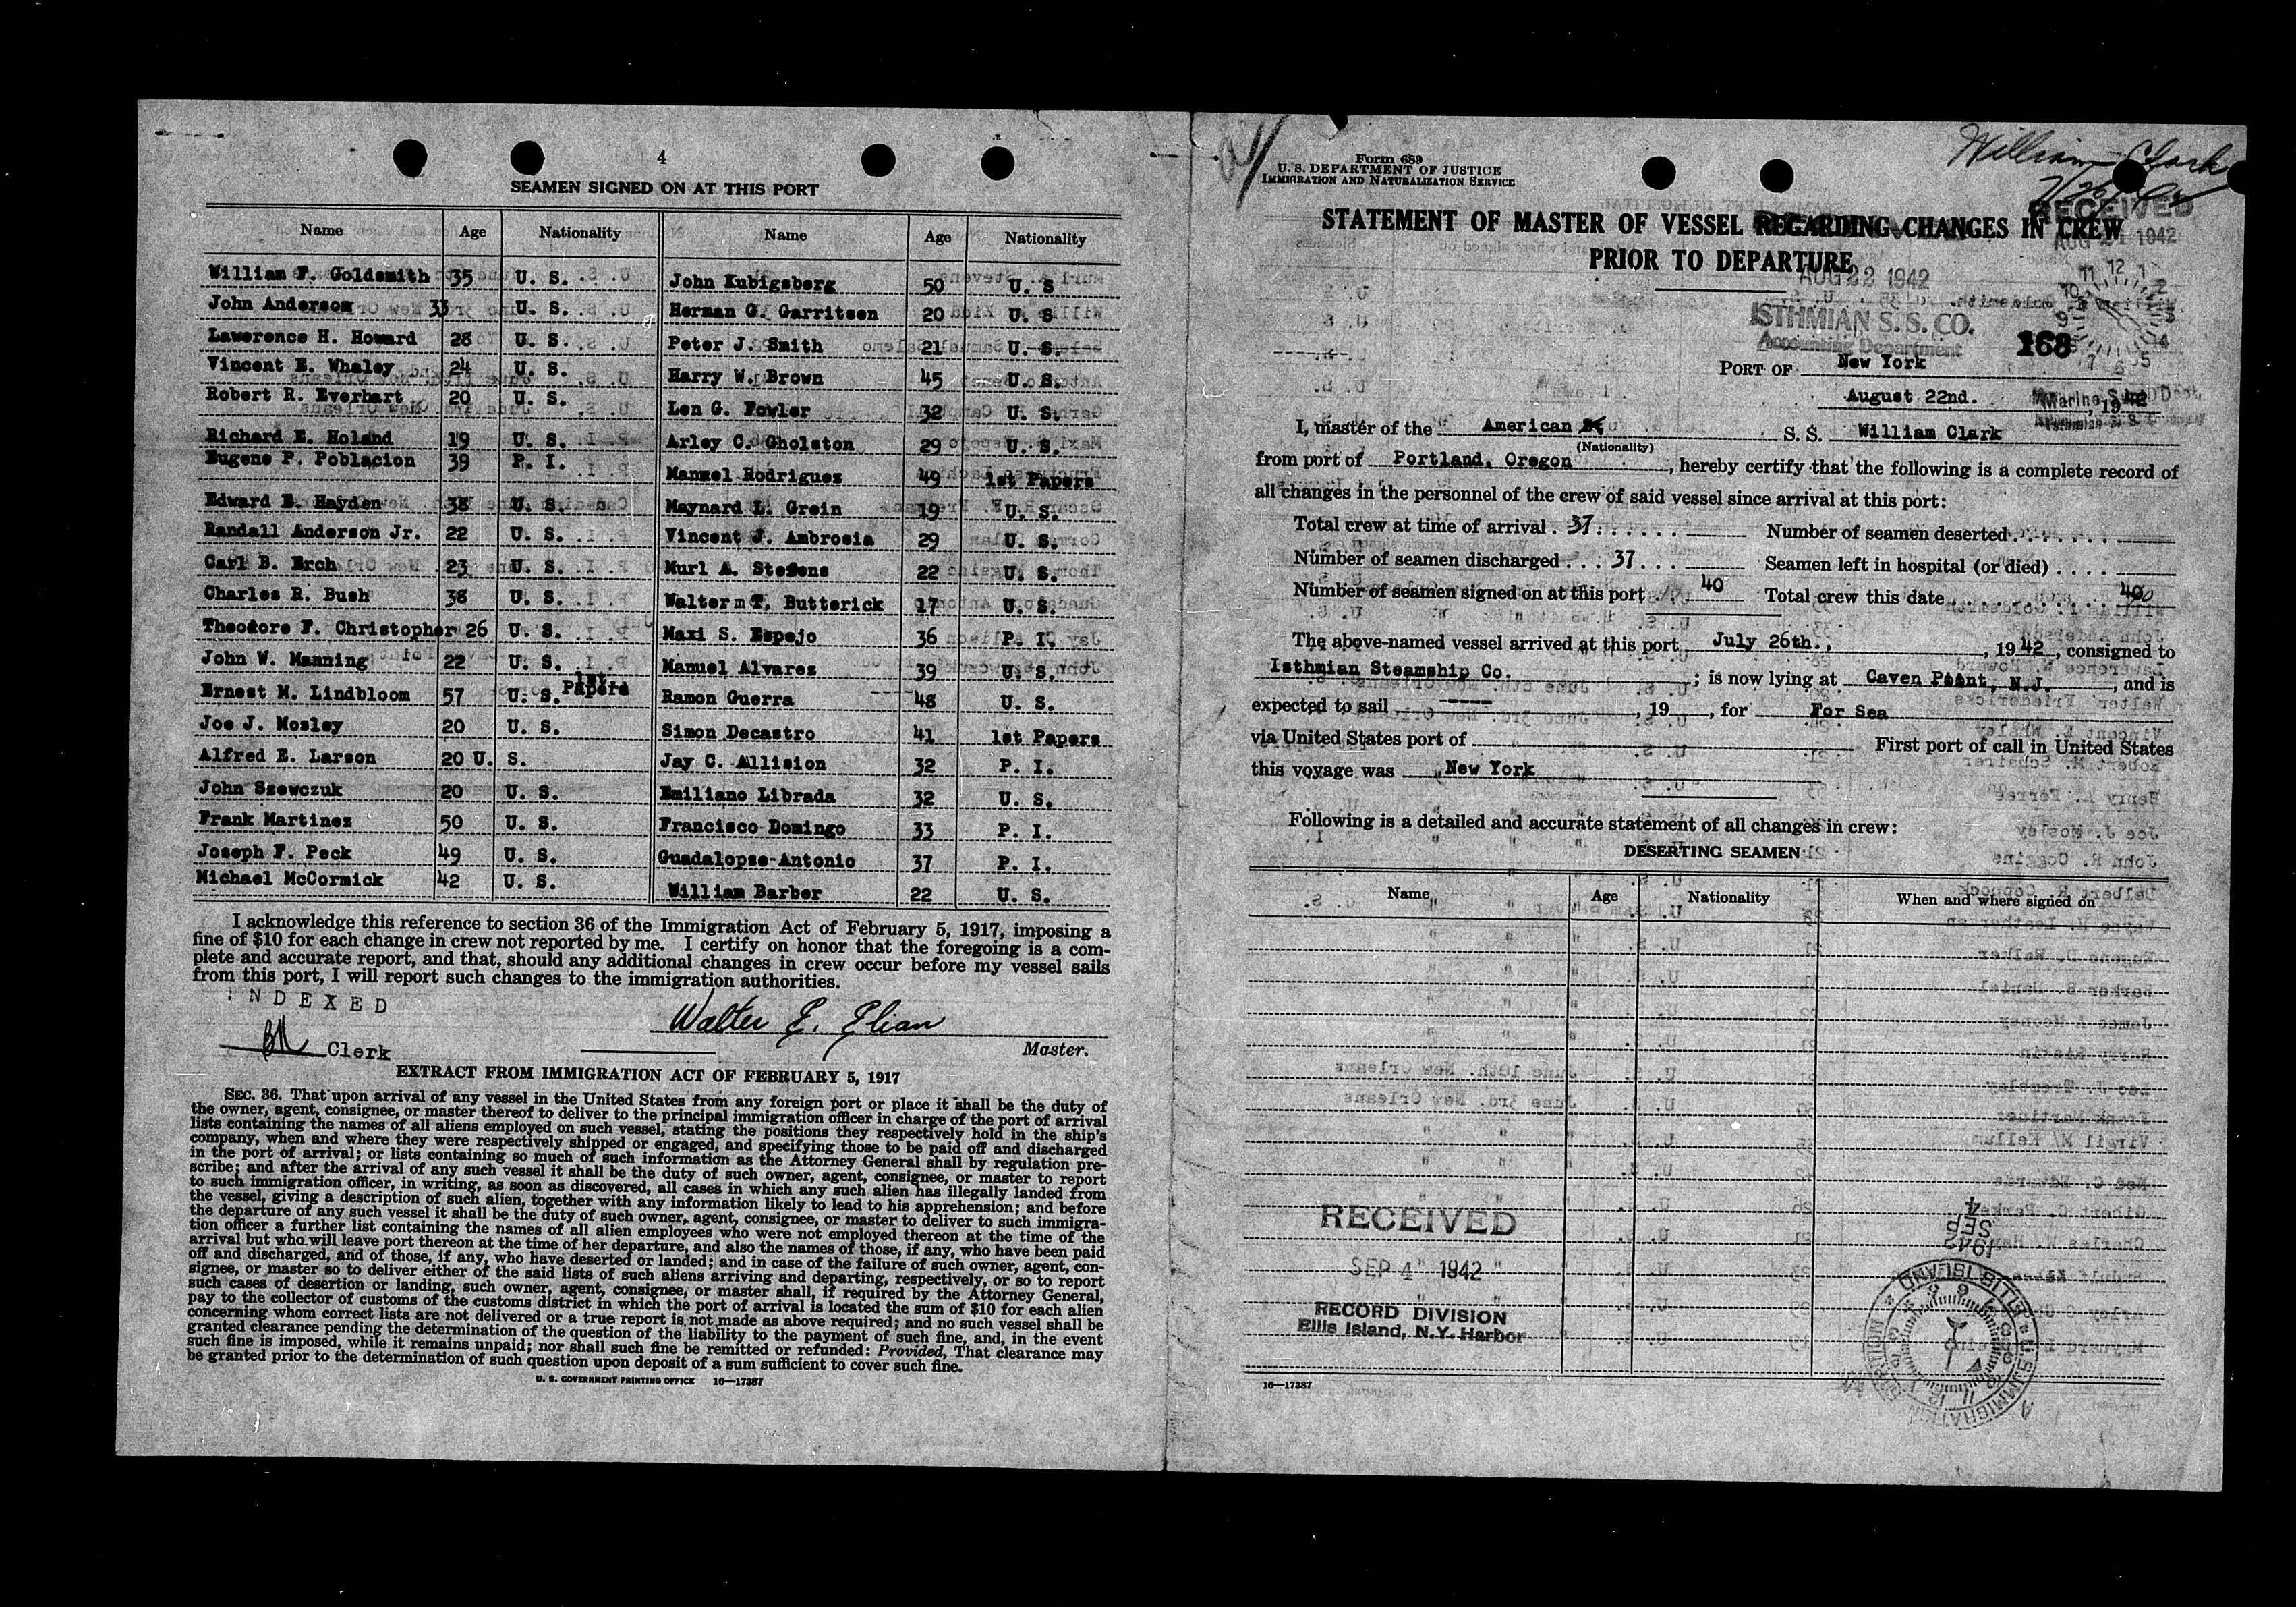 4
SEAMEN SIGNED ON AT THIS PORT
Name Age Nationality Name Age Nationality
William F. Goldsmith 35 U. S. John Kubigsberg 50 U. S
John Anderson 33 U. S. Herman G. Garritsen 20 U. S
Lawerence H. Howard 28 U. S. Peter J. Smith 21 U. S.
Vincent E. Whaley 24 U. S. Harry W. Brown 45 U. S.
Robert R. Everhart 20 U. S. Len G. Fowler 32 U. S.
Richard E. Holand 19 U. S. Arley C. Gholston 29 U. S.
Eugene P. Poblacion 39 P. I. Manuel Rodriguez 49 1st Papers
Edward E. Hayden 38 U. S. Maynard L. Grein 19 U. S.
Randall Anderson Jr. 22 U. S. Vincent J. Ambrosia 29 U. S.
Carl B. Erch 23 U. S. Murl A. Stevens 22 U. S.
Charles R. Bush 38 U. S. Walter T. Butterick 17 U. S.
Theodore F. Christopher 26 U. S. Maxi S. Espejo 36 P. I.
John W. Manning 22 U. S. Manuel Alvarez 39 U. S.
Ernest M. Lindbloom 57 U. S. 1st Papers Ramon Guerra 48 U. S.
Joe J. Mosley 20 U. S. Simon Decastro 41 1st Papers
Alfred E. Larson 20 U. S. Jay C. Allision 32 P. I.
John Szewczuk 20 U. S. Emiliano Librada 32 U. S.
Frank Martinez 50 U. S. Francisco Domingo 33 P. I.
Joseph F. Peck 49 U. S. Guadalopse Antonio 37 P. I.
Michael McCormick 42 U. S. William Barber 22 U. S.
I acknowledge this reference to section 36 of the Immigration Act of February 5, 1917, imposing a
fine of $10 for each change in crew not reported by me. I certify on honor that the foregoing is a com-
plete and accurate report, and that, should any additional changes in crew occur before my vessel sails
from this port, I will report such changes to the immigration authorities.
INDEXED
Walter E. Elian
Clerk Master.
EXTRACT FROM IMMIGRATION ACT OF FEBRUARY 5, 1917
SEC. 36. That upon arrival of any vessel in the United States from any foreign port or place it shall be the duty of
the owner, agent, consignee, or master thereof to deliver to the principal immigration officer in charge of the port of arrival
lists containing the names of all aliens employed on such vessel, stating the positions they respectively hold in the ship's
company, when and where they were respectively shipped or engaged, and specifying those to be paid off and discharged
in the port of arrival; or lists containing so much of such information as the Attorney General shall by regulation pre-
scribe; and after the arrival of any such vessel it shall be the duty of such owner, agent, consignee, or master to report
to such immigration officer, in writing, as soon as discovered, all cases in which any such alien has illegally landed from
the vessel, giving a description of such alien, together with any information likely to lead to his apprehension; and before
the departure of any such vessel it shall be the duty of such owner, agent, consignee, or master to deliver to such immigra-
tion officer a further list containing the names of all alien employees who were not employed thereon at the time of the
arrival but who will leave port thereon at the time of her departure, and also the names of those, if any, who have been paid
off and discharged, and of those, if any, who have deserted or landed; and in case of the failure of such owner, agent, con-
signee, or master so to deliver either of the said lists of such aliens arriving and departing, respectively, or so to report
such cases of desertion or landing, such owner, agent, consignee, or master shall, if required by the Attorney General,
pay to the collector of customs of the customs district in which the port of arrival is located the sum of $10 for each alien
concerning whom correct lists are not delivered or a true report is not made as above required; and no such vessel shall be
granted clearance pending the determination of the question of the liability to the payment of such fine, and, in the event
such fine is imposed, while it remains unpaid; nor shall such fine be remitted or refunded: Provided, That clearance may
be granted prior to the determination of such question upon deposit of a sum sufficient to cover such fine.
U. S. GOVERNMENT PRINTING OFFICE 16—17387
William Clark
Form 689
U. S. DEPARTMENT OF JUSTICE
IMMIGRATION AND NATURALIZATION SERVICE
RECEIVED
AUG 21 1942
STATEMENT OF MASTER OF VESSEL REGARDING CHANGES IN CREW
PRIOR TO DEPARTURE
AUG 22 1942
ISTHMIAN S. S. CO.
Accounting Department
168
PORT OF New York
August 22nd. , 1942
I, master of the American S. S. William Clark
(Nationality)
from port of Portland, Oregon, hereby certify that the following is a complete record of
all changes in the personnel of the crew of said vessel since arrival at this port:
Total crew at time of arrival 37 Number of seamen deserted
Number of seamen discharged 37 Seamen left in hospital (or died)
Number of seamen signed on at this port 40 Total crew this date 40
The above-named vessel arrived at this port July 26th., 1942, consigned to
Isthmian Steamship Co. ; is now lying at Caven Point, N.J., and is
expected to sail ----, 19 , for For Sea
via United States port of First port of call in United States
this voyage was New York
Following is a detailed and accurate statement of all changes in crew:
DESERTING SEAMEN
Name Age Nationality When and where signed on
RECEIVED
SEP 4 1942
RECORD DIVISION
Ellis Island, N.Y. Harbor
SEP 4
1942
16—17387